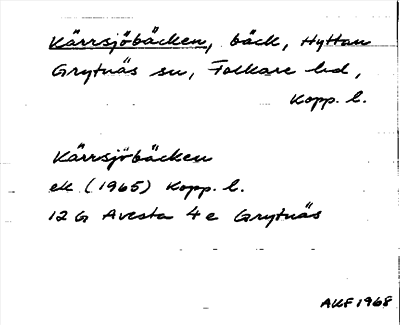 Kärrsjöbäcken, bäck, Hyttan
Grytnäs sn, Folkare hd,
Kopp. l.
Kärrsjöbäcken
ek (1965) Kopp. l.
12 G Avesta 4 e Grytnäs
AKF 1968